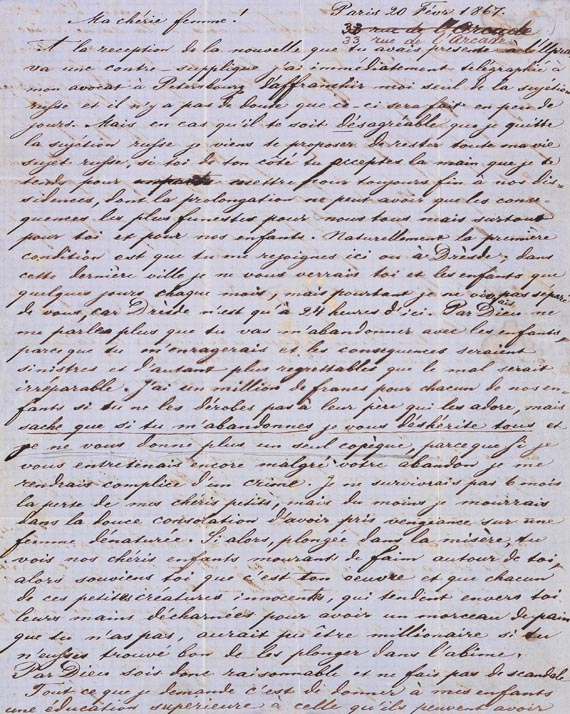 Paris 20 Févr 1867.
Ma chérie femme! 33 rue de l'Arcade
33 rue de l'Arcade
A la reception de la nouvelle que tu avais présenté à l'
va une contre supplique j'ai immédiatement télégraphié à
mon avocat à Petersbourg d'affranchir moi seul de la sujetion
russe et il n'y a pas à douter que ce-ci sera fait en peu de
jours. Mais en cas qu'il te soit désagréable que je quitte
la sujetion russe je viens te proposer de rester toute ma vie
sujet russe, si toi de ton côté tu acceptes la main que je te
tends pour mettre pour toujours fin à nos dis-
sidences, dont la prolongation ne peut avoir que les consé-
quences les plus funestes pour nous tous mais surtout
pour toi et pour nos enfants. Naturellement la première
condition est que tu me rejoignes ici ou à Dresde; dans
cette dernière ville je ne vous verrais toi et les enfants que
quelques jours chaque mois, mais pourtant je ne vivrais pas séparé
de vous, car Dresde n'est qu'à 24 heures d'ici. Par Dieu ne
me parle plus que tu vas m'abandonner avec les enfants,
parceque tu m'enragerais et les consequences seraient
sinistres et d'autant plus regrettables que le mal serait
irréparable. J'ai un million de francs pour chacun de nos en-
fants si tu ne les dérobes pas à leur père qui les adore, mais
sache que si tu m'abandonnes je vous déshérite tous et
je ne vous donne plus un seul copèque, parceque si je
vous entretenais encore malgré votre abandon je me
rendrais complice d'un crime. Je ne survivrais pas 6 mois
la perte de mes chéris petits, mais du moins je mourrais
dans la douce consolation d'avoir pris vengeance sur une
femme dénaturée. Si alors, plongée dans la misère, tu
vois nos chéris enfants mourant de faim autour de toi,
alors souviens toi que c'est ton oeuvre et que chacun
de ces petites créatures innocents, qui tendent envers toi
leurs mains décharnées pour avoir un morceau de pain
que tu n'as pas, aurait pu être millionaire si tu
n'eusses trouvé bon de les plonger dans l'abîme.
Par Dieu sois donc raisonnable et ne fais pas de scandale
Tout ce que je demande c'est de donner à mes enfants
une éducation superieure à celle qu'ils peuvent avoir